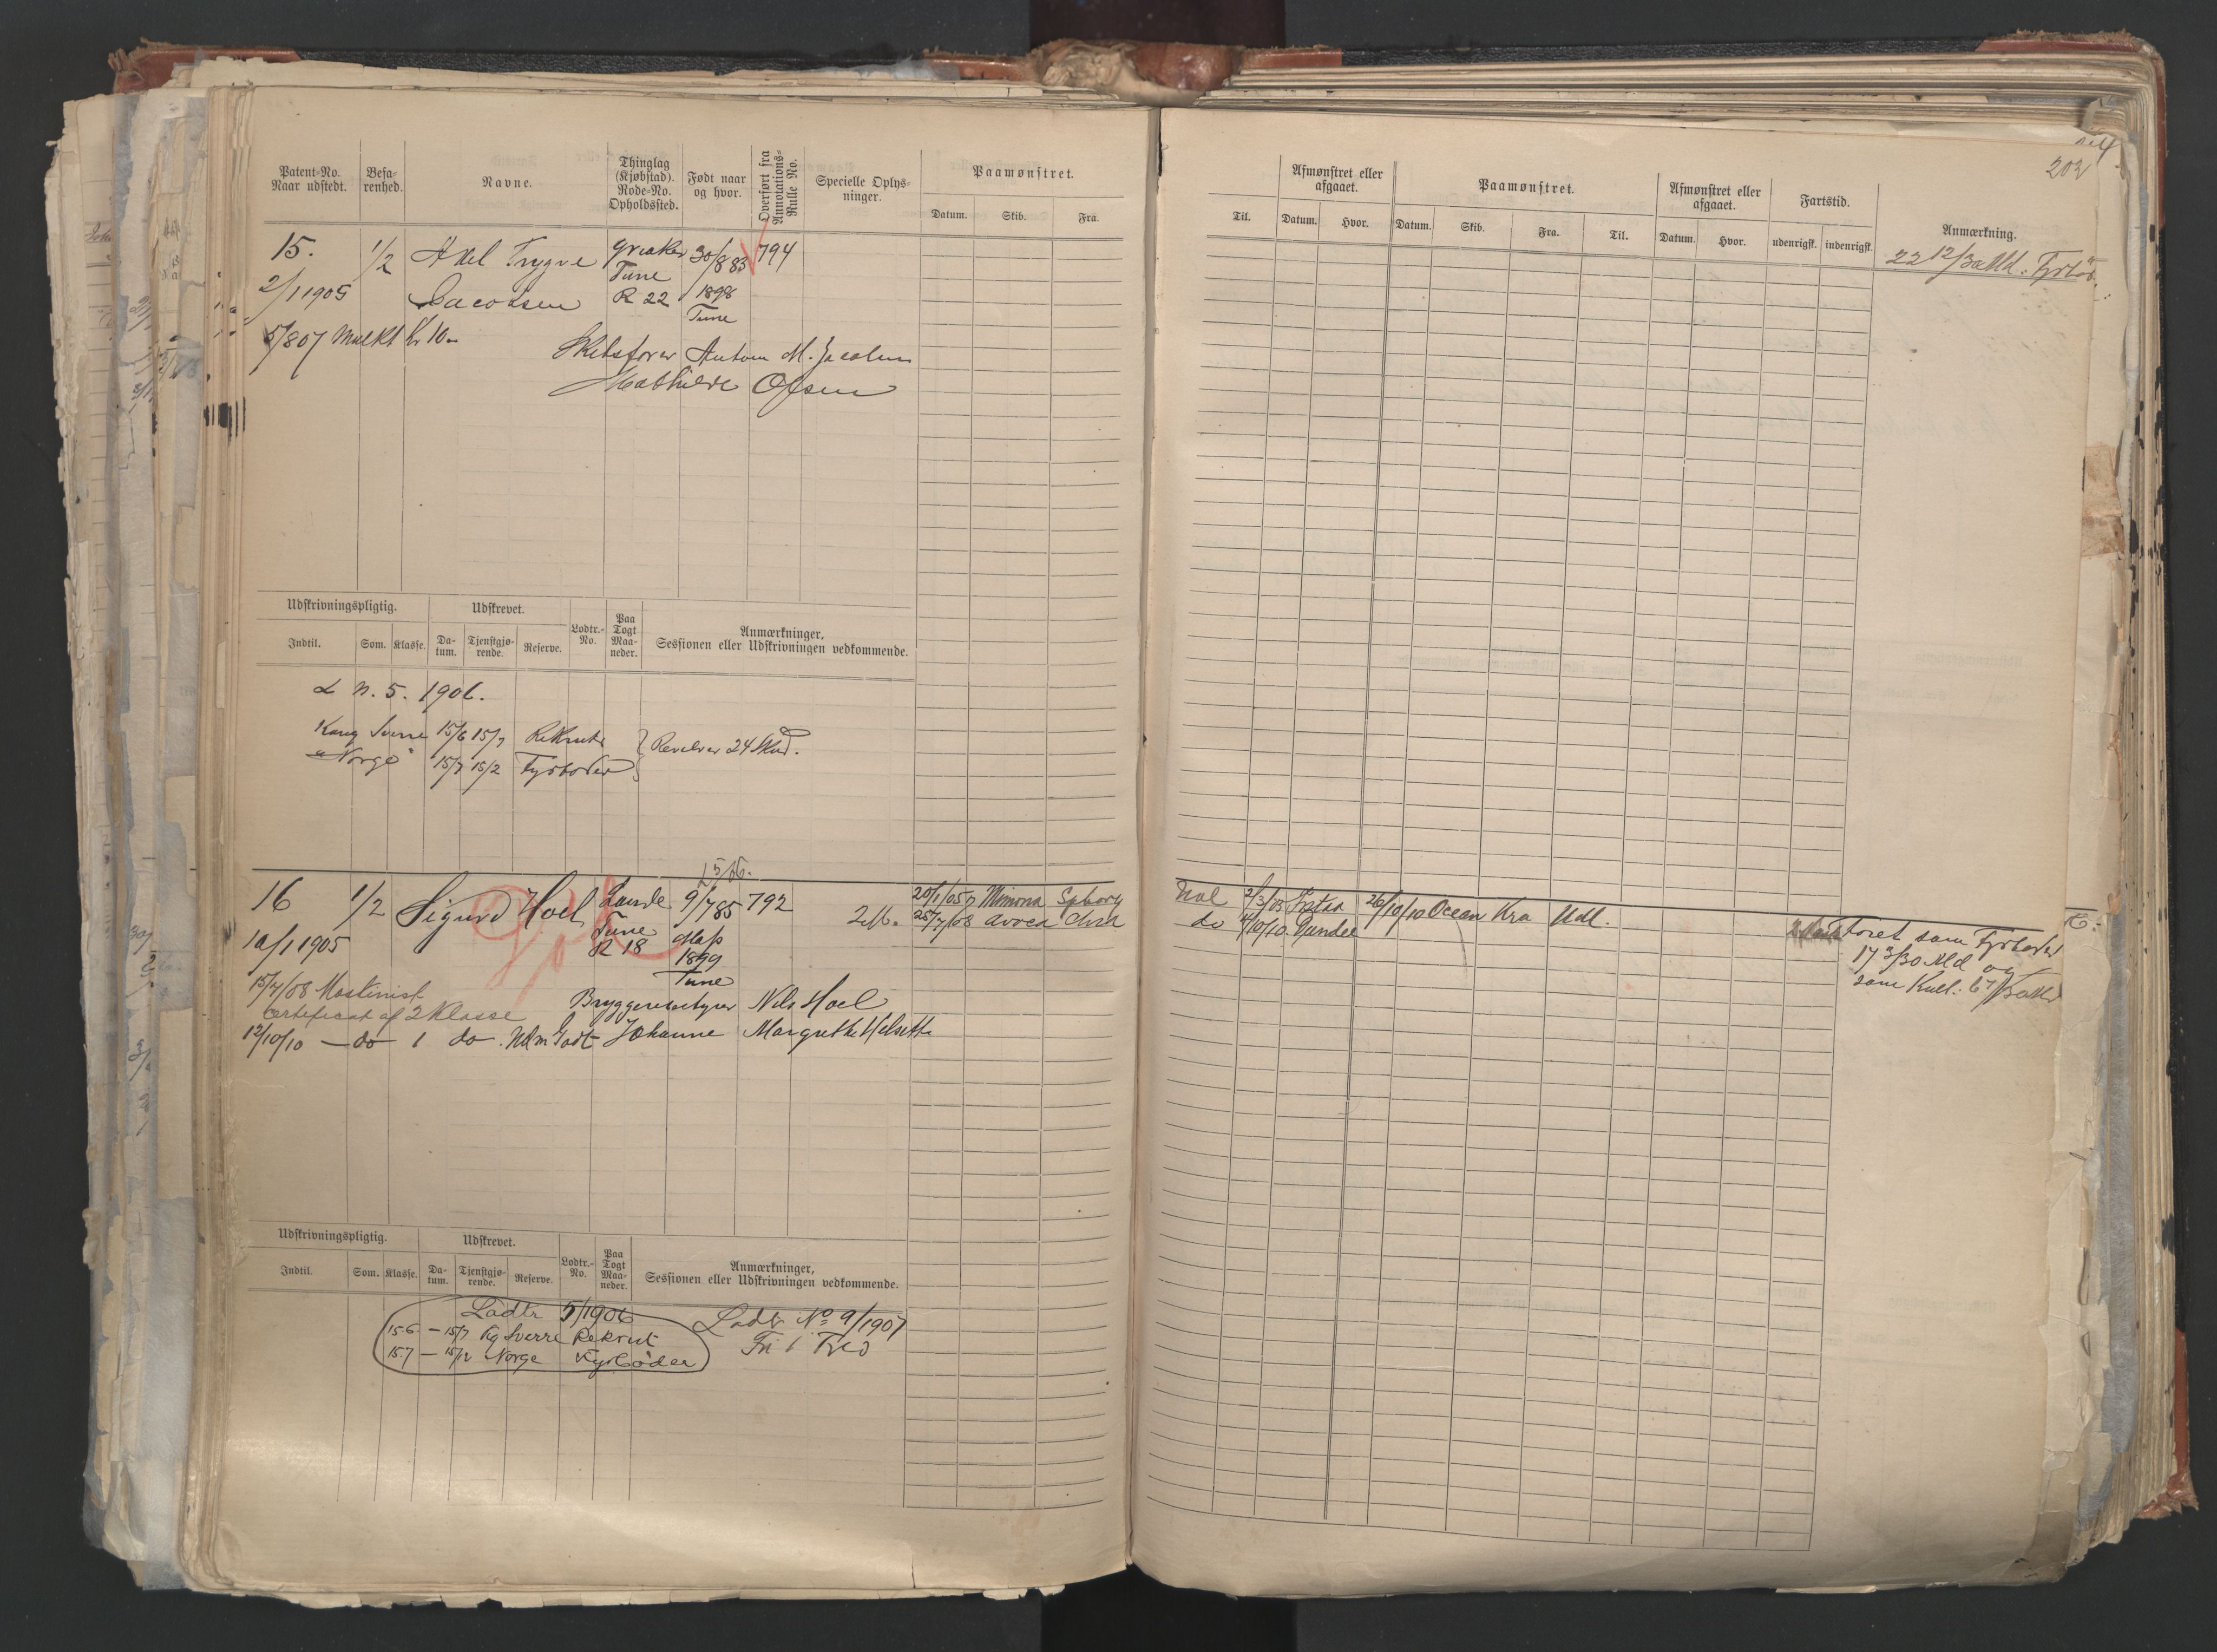 202
Patent-No. Naar udstedt.
Befarenhed.
Navne.
Thinglag (Kjøbstad). Rode-No. Opholdssted.
Født naar og hvor.
Overført fra Annotations-Rulle No.
Specielle Oplysninger.
Paamønstret.
Datum.
Skib.
Fra.
Til.
Afmønstret eller afgaaet.
Datum.
Hvor.
Paamønstret.
Datum.
Skib.
Fra.
Til.
Afmønstret eller afgaaet.
Datum.
Hvor.
Fartstid.
udenrigsk.
indenrigsk.
Anmærkning.
15. 1/2 Axel Trygve Greaker 30/8 83 794
22 12/30 Md. Fyrbød.
2/1 1905 Jacobsen Tune R 22 1898 Tune
5/8 07 Mulkt Kr 10
Skibsfører Anton M. Jacobsen
Mathilde Olsen
Udskrivningspligtig.
Udskrevet.
Indtil.
Som.
Klasse.
Datum.
Tjenstgjørende.
Reserve.
Lodtr.-No.
Paa Togt Maaneder.
Anmærkninger, Sessionen eller Udskrivningen vedkommende.
L N. 5. 1906.
Kong Sverre 15/6 15/7 Rekrut
"Norge" 15/7 15/2 Fyrbøder
Revolver 24 Skud.
L 5/06.
16 1/2 Sigurd Hoel Lande 9/7 85 792
20/1/05 Mimona Spborg Udl 2/3/05
25/7/08 Avoca Chra do 4/10/10 Dundee
26/10/10 Ocean Kra Udl.
10/1 1905 Tune R 18 1899 Tune
faret som Fyrbøder
17 3/30 Md og
som Kull.
15/7/08 Maskinist
Certificat af 2 Klasse
Bryggeribestyrer Nils Hoel
12/10/10 – do 1 do. Johanne Margrethe Helseth
Udskrivningspligtig.
Udskrevet.
Indtil.
Som.
Klasse.
Datum.
Tjenstgjørende.
Reserve.
Lodtr.-No.
Paa Togt Maaneder.
Anmærkninger, Sessionen eller Udskrivningen vedkommende.
Lodtr 5/1906
15.6 – 15/7 Kg Sverre Rekrut
15.7 – 15/12 Norge Fyrbøder
Lodtr No 9/1907
Fri i Fred